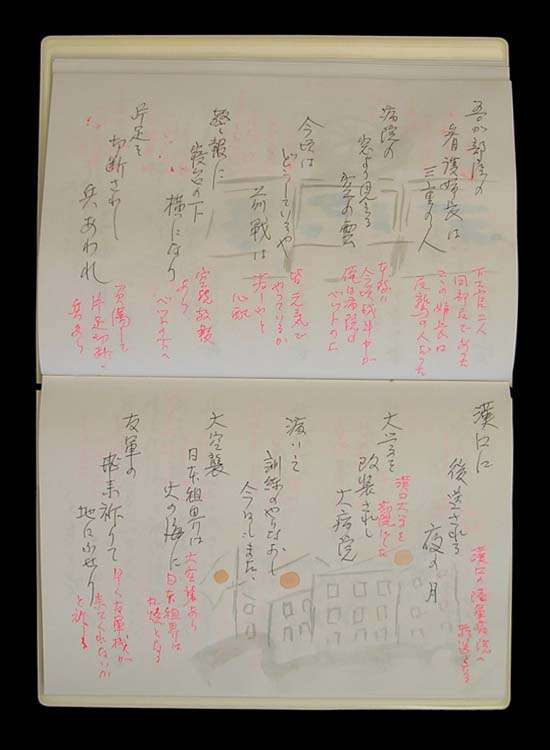 吾が部屋の
看護婦長は
三重の人
下士官二人
同部屋であった
この婦長は
病院の
窓より見ゆる
空の雲
俺は病院の
ベッドの上
今頃は
どうしているや
前戦は
皆元気で
やっているか
心配
警報に
寝台の下
横になり
空襲警報
より
ベッドの下へ
片足を
切断されし
兵あわれ
負傷して
片足切断
兵あり
漢口に
後送される
夜の月
漢口の陸軍病院へ
転送となる
大学を
改装されし
大病院
漢口大学を
病院とした
泣いて
訓練のやりなおし
今日もまた
大空襲
日本租界は
火の海に
大空襲あり
日本租界は
友軍の
飛来祈りて
地にふせり
早く友軍機が
来てくれないか
と祈る